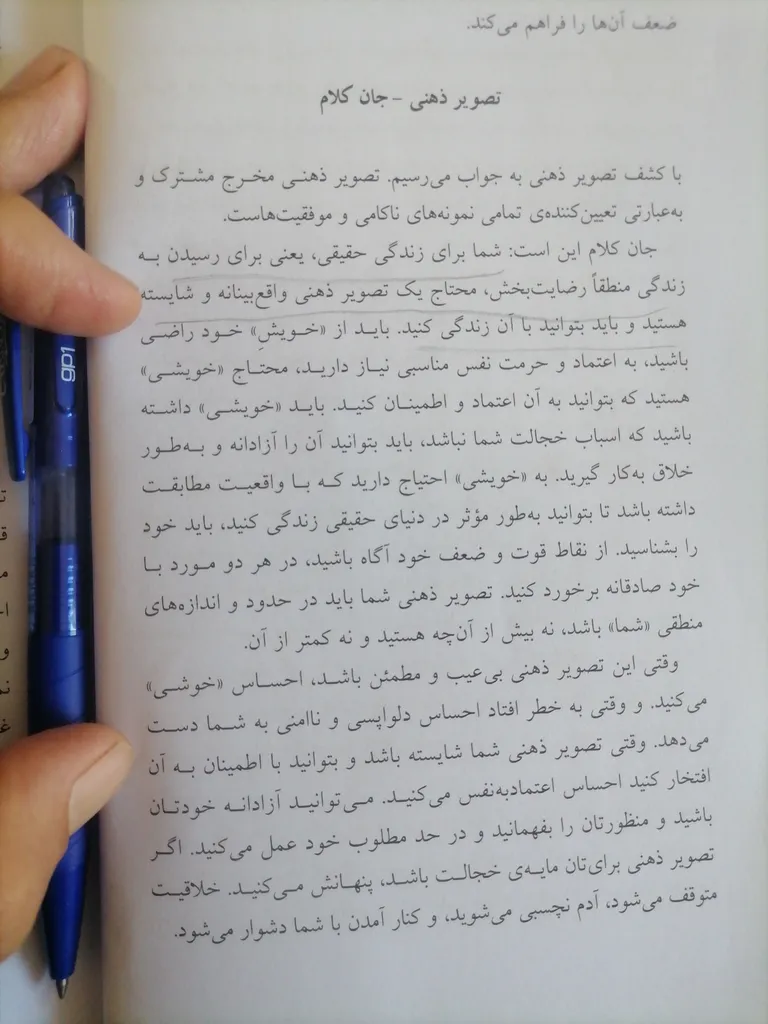 ضعف آن‌ها را فراهم می‌کند.
تصویر ذهنی – جان کلام
با کشف تصویر ذهنی به جواب می‌رسیم. تصویر ذهنـی مخـرج مشـترک و
به‌عبارتی تعیین‌کننده‌ی تمامی نمونه‌های ناکامی و موفقیت‌هاست.
جان کلام این است: شما برای زندگی حقیقی، یعنی برای رسیدن بـه
زندگی منطقاً رضایت‌بخش، محتاج یک تصویر ذهنی واقع‌بینانه و شایسته
هستید و باید بتوانید با آن زندگی کنید. بایـد از «خـویشِ» خـود راضـی
باشید، به اعتماد و حرمت نفس مناسبی نیـاز داریـد، محتـاج «خویشـی»
هستید که بتوانید به آن اعتماد و اطمینـان کنیـد. بایـد «خویشـی» داشـته
باشید که اسباب خجالت شما نباشد، باید بتوانید آن را آزادانه و بـه‌طـور
خلاق به‌کار گیرید. به «خویشی» احتیاج دارید کـه بـا واقعیـت مطابقـت
داشته باشد تا بتوانید به‌طور مؤثر در دنیای حقیقی زندگی کنید، باید خود
را بشناسید. از نقاط قوت و ضعف خود آگاه باشید، در هر دو مـورد بـا
خود صادقانه برخورد کنید. تصویر ذهنی شما باید در حدود و اندازه‌های
منطقی «شما» باشد، نه بیش از آن‌چه هستید و نه کمتر از آن.
وقتی این تصویر ذهنی بی‌عیب و مطمئن باشـد، احسـاس «خوشـی»
می‌کنید. و وقتی به خطر افتاد احساس دلواپسی و ناامنی به شـما دسـت
می‌دهد. وقتی تصویر ذهنی شما شایسته باشد و بتوانید با اطمینان بـه آن
افتخار کنید احساس اعتمادبه‌نفس می‌کنیـد. مـی‌توانیـد آزادانـه خودتـان
باشید و منظورتان را بفهمانید و در حد مطلوب خود عمل می‌کنید. اگـر
تصویر ذهنی برای‌تان مایه‌ی خجالـت باشـد، پنهـانش مـی‌کنیـد. خلاقیـت
متوقف می‌شود، آدم نچسبی می‌شوید، و کنار آمدن با شما دشوار می‌شود.
gp1